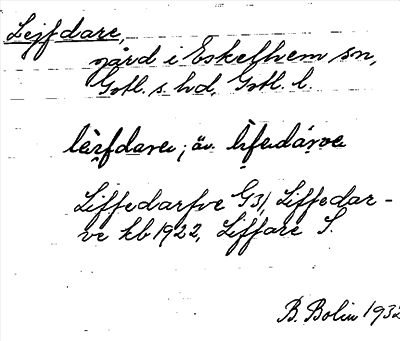 Lejfdare,
gård i Eskelhem sn,
Gotl. s. hd, Gotl. l.
lèi̯fdarę; äv. lìfędárvę
Liffedarfve G31, Liffedar-
ve kb 1922, Liffare S.
B. Bolin 1932